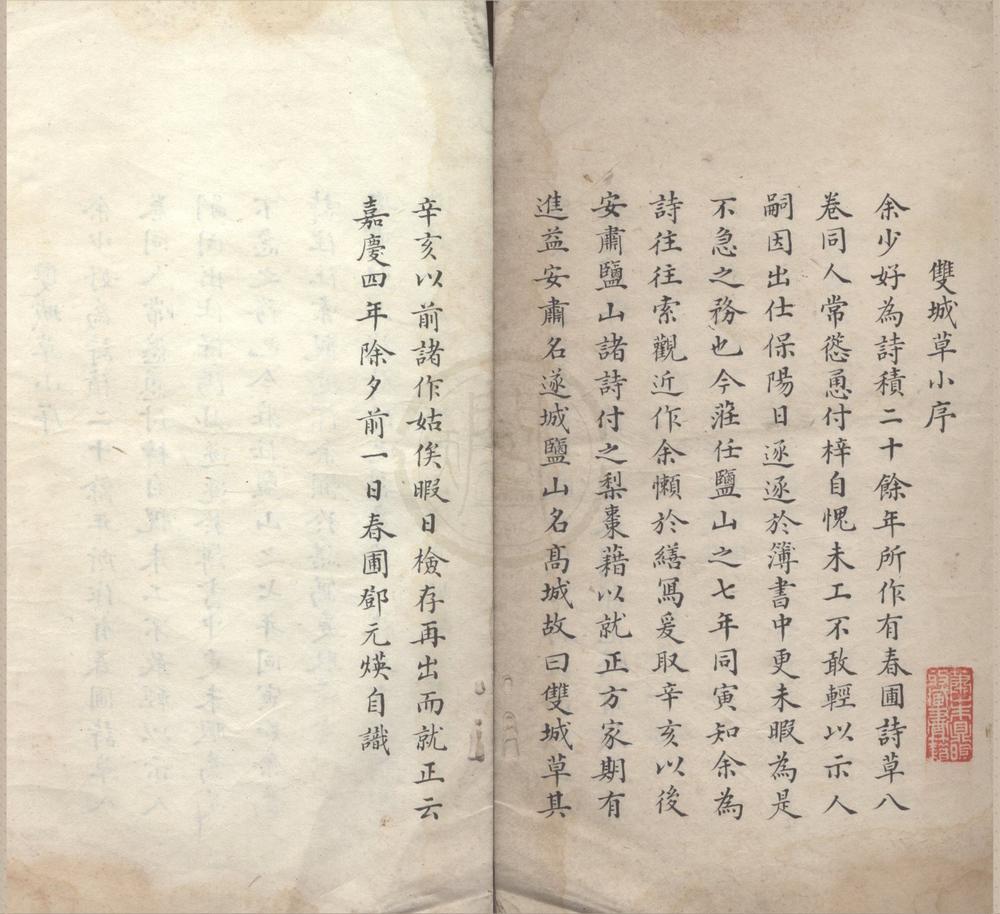 雙城草小序
余少好為詩積二十餘年所作有春圃詩草八
卷同人常慫恿付梓自愧未工不敢輕以示人
嗣因出仕保陽日逐逐於簿書中更未暇為是
不急之務也今莅任鹽山之七年同寅知余為
詩往往索觀近作余懶於繕寫爰取辛亥以後
安肅鹽山諸詩付之梨棗藉以就正方家期有
進益安肅名遂城鹽山名髙城故曰雙城草其
辛亥以前諸作姑俟暇日檢存再出而就正云
嘉慶四年除夕前一日春圃鄧元煐自識